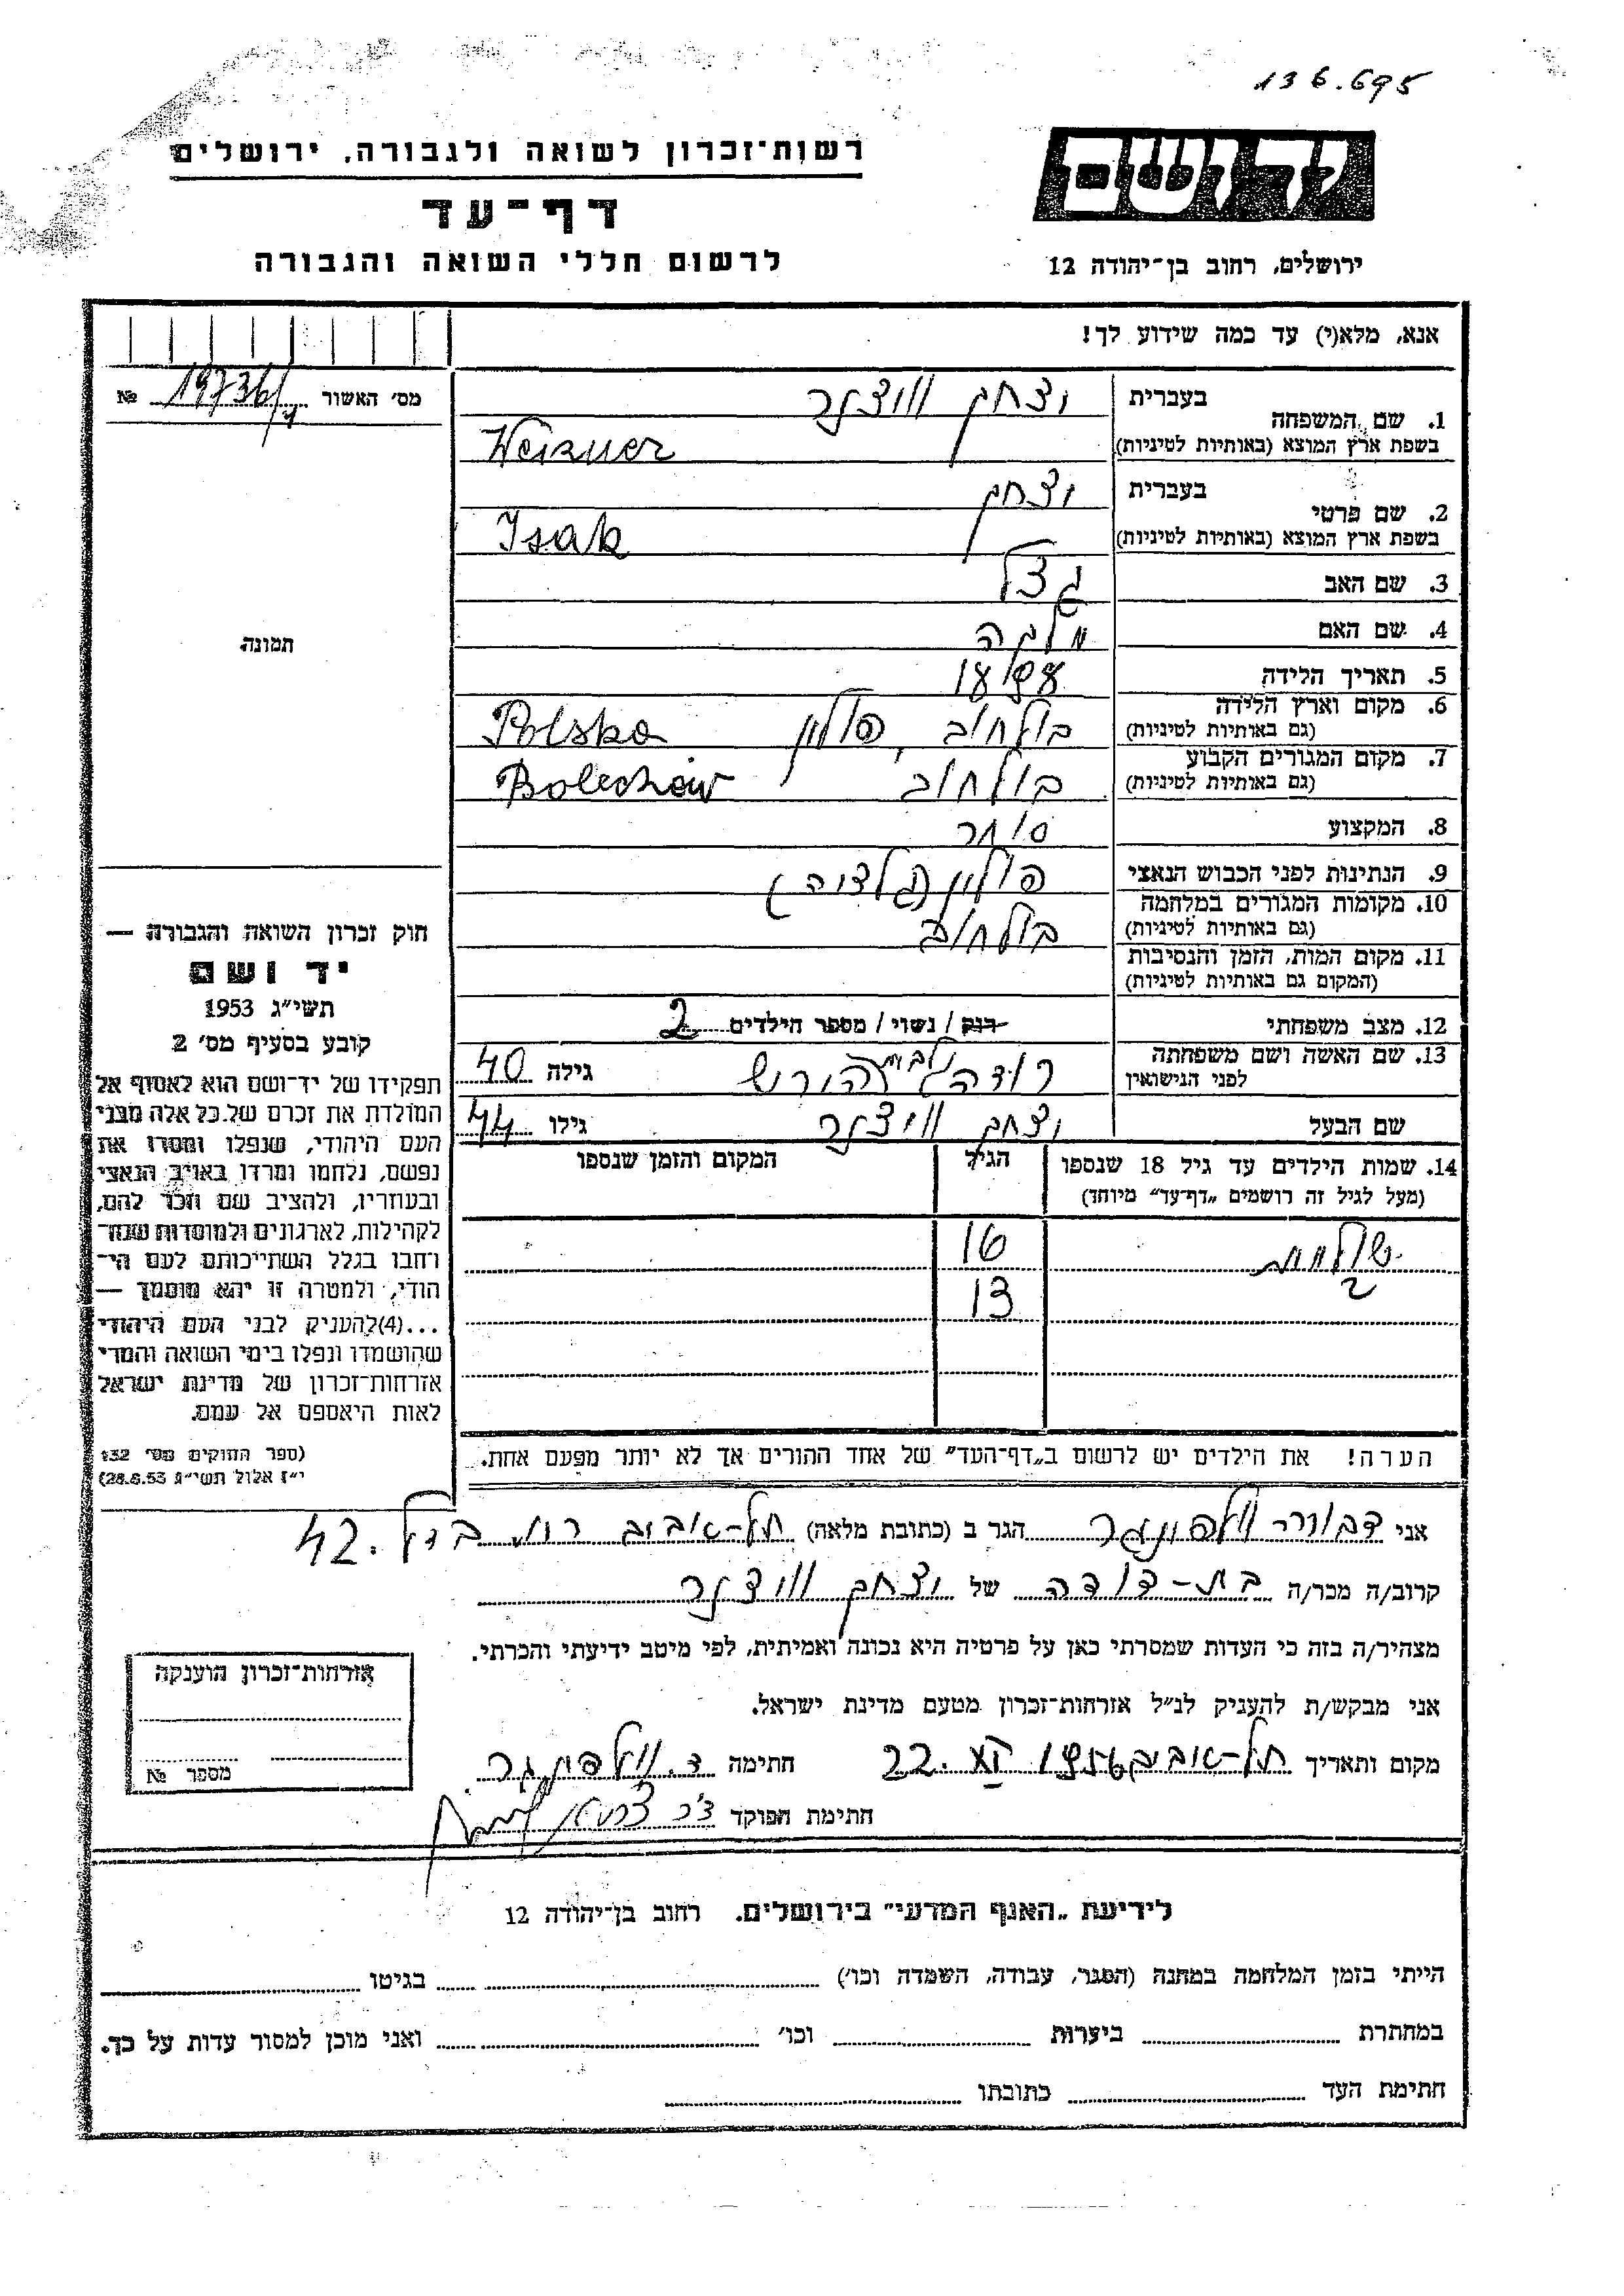 136.695
רשות־זכרון לשואה ולגבורה, ירושלים
יד ושם
דף־עד
לרשום חללי השואה והגבורה
ירושלים, רחוב בן־יהודה 12
אנא, מלא(י) עד כמה שידוע לך!
מס׳ האשור 19736/ №
1. שם המשפחה
בעברית יצחק וויצנר
בשפת ארץ המוצא (באותיות לטיניות) Weizner
2. שם פרטי
בעברית יצחק
בשפת ארץ המוצא (באותיות לטיניות) Isak
3. שם האב געצל
4. שם האם מלכה
5. תאריך הלידה
6. מקום וארץ הלידה
(גם באותיות לטיניות) בולחוב, פולין Polska
7. מקום המגורים הקבוע
(גם באותיות לטיניות) בולחוב Bolechów
8. המקצוע סוחר
9. הנתינות לפני הכבוש הנאצי פולין (גליציה)
10. מקומות המגורים במלחמה
(גם באותיות לטיניות) בולחוב
11. מקום המות, הזמן והנסיבות
(המקום גם באותיות לטיניות)
12. מצב משפחתי רוק / נשוי / מספר הילדים 2
13. שם האשה ושם משפחתה
לפני הנישואין לבית הורש גילה 40
שם הבעל יצחק וויצנר גילו 44
14. שמות הילדים עד גיל 18 שנספו הגיל המקום והזמן שנספו
(מעל לגיל זה רושמים „דף־עד״ מיוחד)
שולמית 16
2 13
הערה! את הילדים יש לרשום ב„דף־העד״ של אחד ההורים אך לא יותר מפעם אחת.
תמונה
חוק זכרון השואה והגבורה —
יד ושם
תשי״ג 1953
קובע בסעיף מס׳ 2
תפקידו של יד־ושם הוא לאסוף אל
המולדת את זכרם של כל אלה מבני
העם היהודי, שנפלו ומסרו את
נפשם, נלחמו ומרדו באויב הנאצי
ובעוזריו, ולהציב שם וזכר להם,
לקהילות, לארגונים ולמוסדות שנח־
רחבו בגלל השתייכותם לעם הי־
הודי, ולמטרה זו יהא מוסמך —
...(4)להעניק לבני העם היהודי
שהושמדו ונפלו בימי השואה והמרי
אזרחות־זכרון של מדינת ישראל
לאות היאספם אל עמם.
(ספר החוקים מס׳ 132
י״ז אלול תשי״ג 28.8.53)
אני דבורה הגר ב (כתובת מלאה) תל-אביב רח׳ 42.
קרוב/ה מכר/ה בת-דודה של יצחק וויצנר
מצהיר/ה בזה כי העדות שמסרתי כאן על פרטיה היא נכונה ואמיתית, לפי מיטב ידיעתי והכרתי.
אני מבקש/ת להעניק לנ״ל אזרחות־זכרון מטעם מדינת ישראל.
מקום ותאריך תל-אביב 22. XI חתימה ד.
חתימת הפוקד
אזרחות־זכרון הוענקה
מספר №
לידיעת „האגף המדעי״ בירושלים. רחוב בן־יהודה 12
הייתי בזמן המלחמה במחנה (הסגר, עבודה, השמדה וכו׳) בגיטו
במחתרת ביערות וכו׳ ואני מוכן למסור עדות על כך.
חתימת העד כתובתו